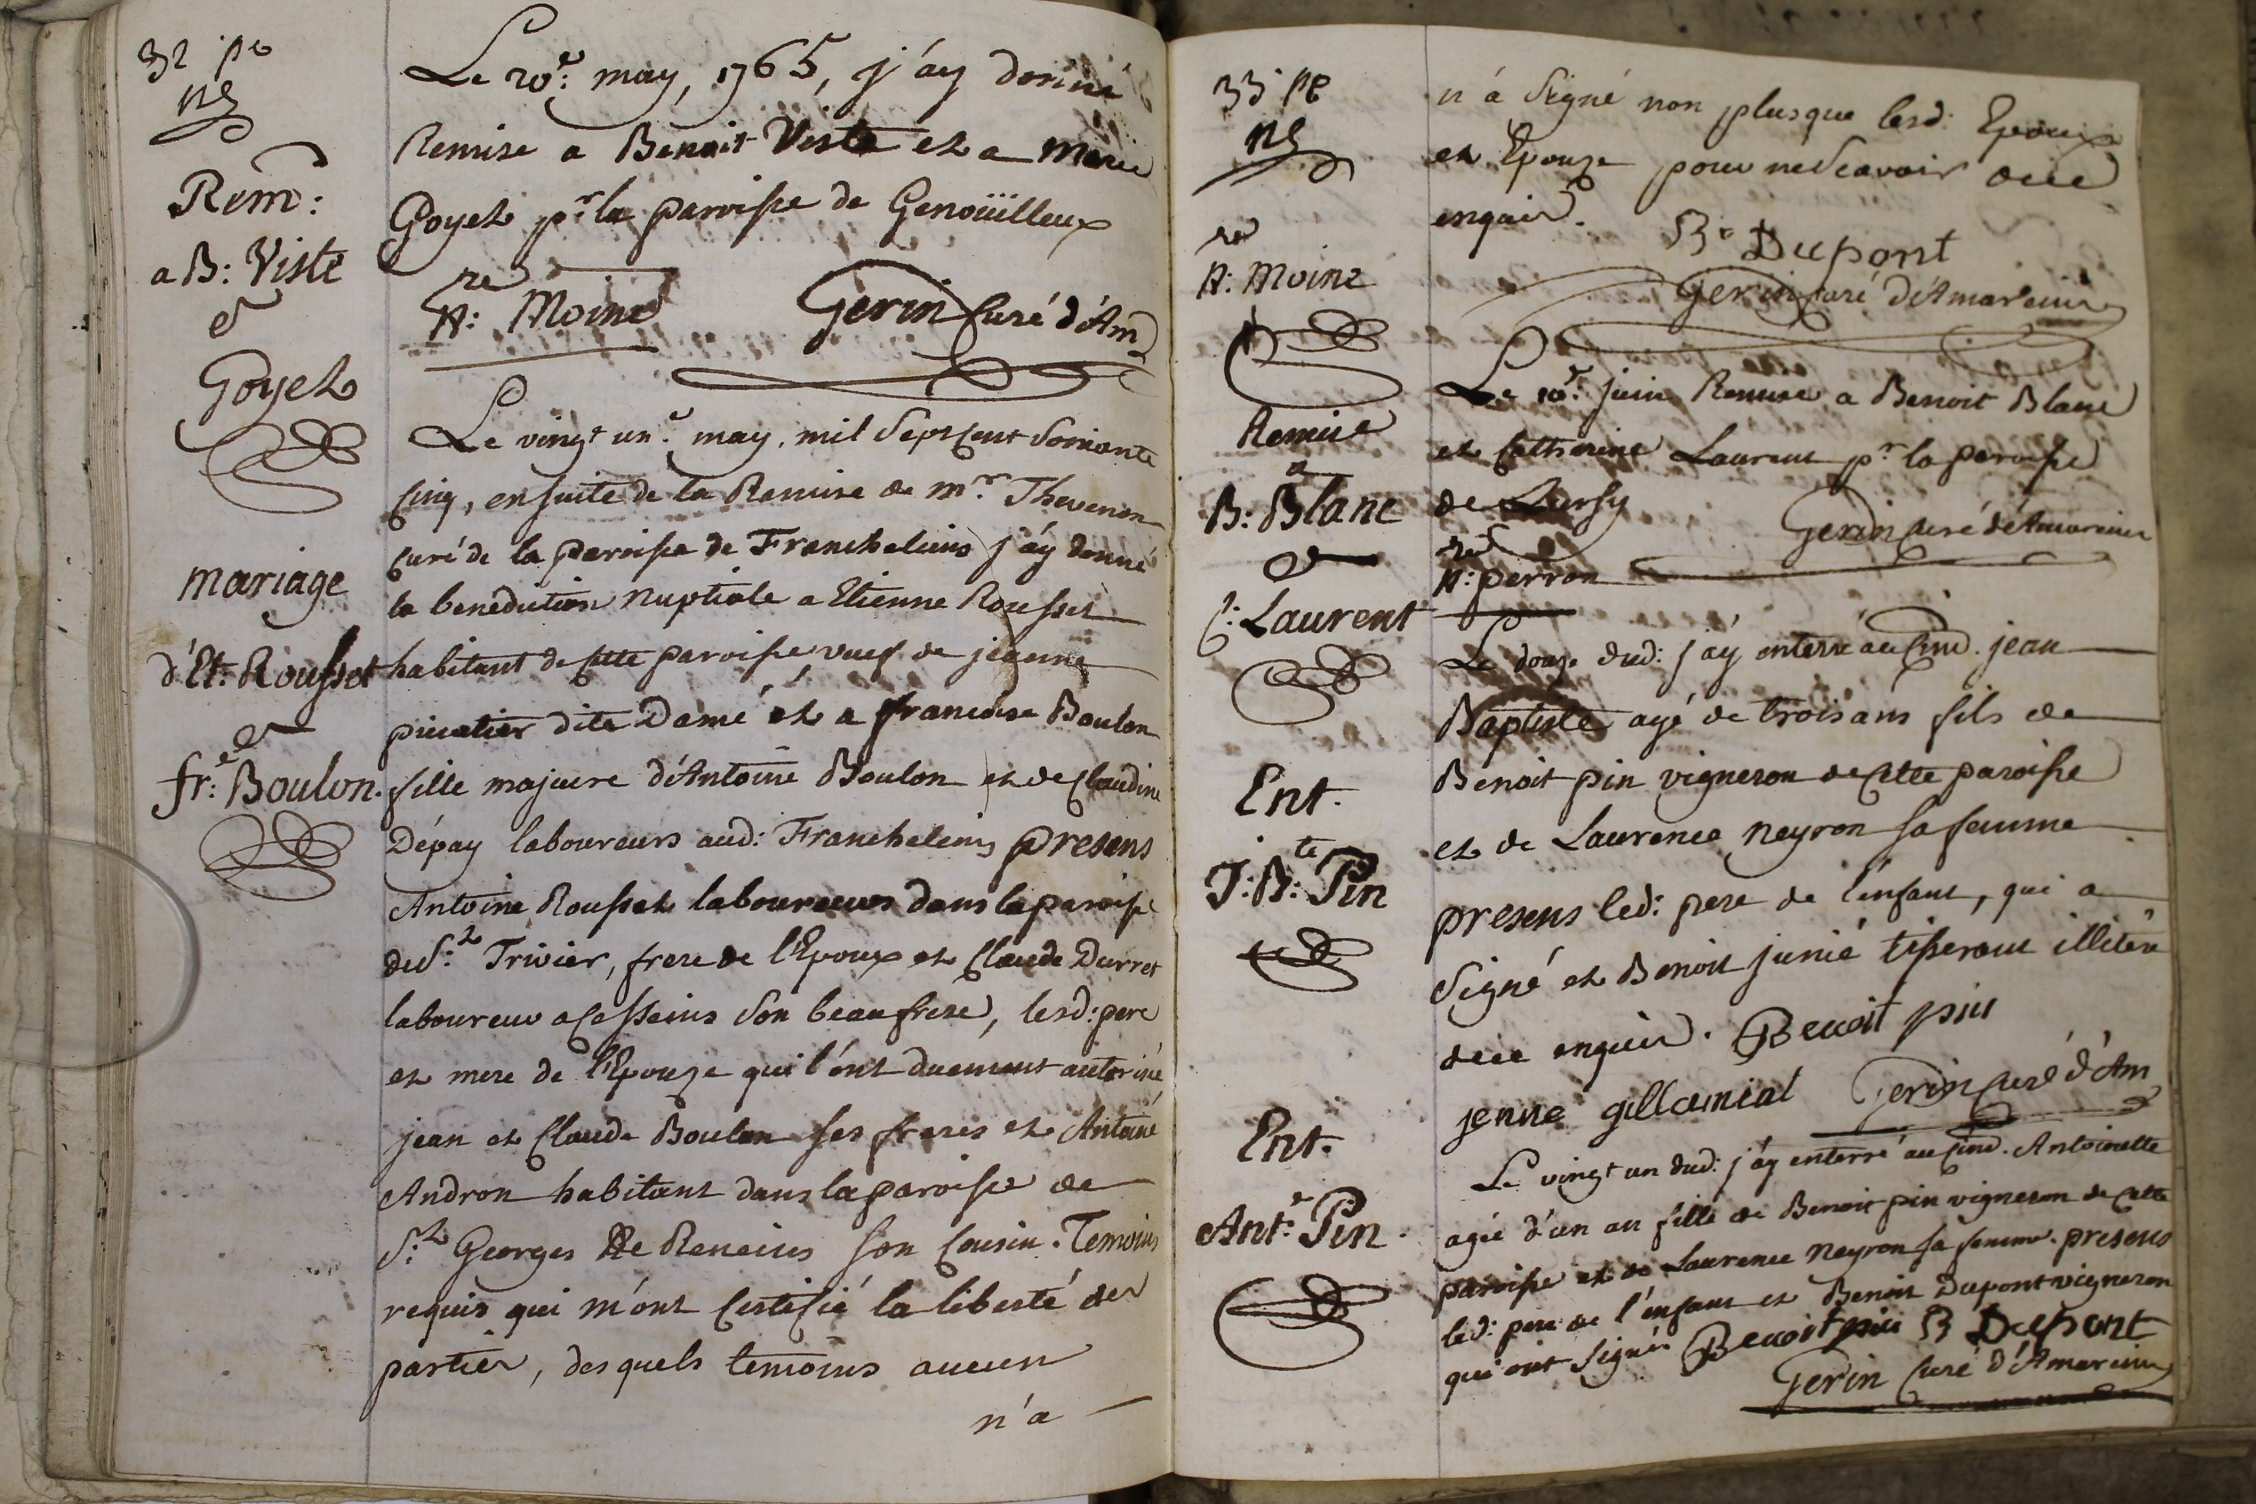 32 pe
Rem:
a B: Viste
&
Goyet
mariage
d'Et: Rousset
&
fr:e Boulon.
Le 20e: may, 1765, j'ay donné
Remise a Benoit Viste et a marie
Goyet pr la paroisse de Genoüilleux
re
A: Moine Gerin Curé d'Am
Le vingt un.e may, mil Sept Cent Soixante
Cinq, ensuite de la Remise de mr. Thevenon
Curé de la paroisse de Franchelins j'ay donné
la benediction nuptiale a Etienne Rousset
habitant de Cette paroisse veuf de jeanne
pieratier dite Damé et a francoise Boulon
fille majeure d'Antoine Boulon et de Claudine
Dépay laboureurs aud: Franchelins presens
Antoine Rousset laboureur dans la paroisse
de St: Trivier, frere de l'Epoux et Claude Durret
laboureur a Cesseins Son beaufrere, lesd: pere
et mere de l'Epouze qui l'ont duement autorisé
jean et Claude Boulon ses freres et Antoine
Andron habitant dans la paroisse de
St: Georges De Reneins son Cousin. Temoins
requis qui m'ont Certifié la liberté des
parties, desquels temoins aucun
n'a
33 pe
re
A: Moine
Remise
a
B: Blanc
&
C: Laurent
Ent.
J: B:te Pin
Ent.
Ant:e Pin.
n'a Signé non plus que lesd: Epoux
et Epouze pour ne Scavoir de ce
enquis.
Bt Dupont
Gerin Curé d'Amareins
Le 10e: juin Remise a Benoit Blanc
et Catherine Laurent pr la paroisse
de Lursy
Gerin Curé d'Amareins
re
A: perron
Le douze dud: j'ay enterré au Cim. jean
Baptiste agé de trois ans fils de
Benoit pin vigneron de Cette paroisse
et de Laurence neyron sa femme
presens led: pere de l'enfant, qui a
Signé et Benoit junié tisserant illiteré
de ce enquis. Benoit pin
jenne gillamial Gerin Curé d'Am
Le vingt un dud: j'ay enterré au Cim. Antoinette
agée d'un an fille de Benoit pin vigneron de Cette
paroisse et de Laurence neyron sa femme. presens
led: pere de l'enfant et Benoit Dupont vigneron
qui ont Signés Benoit pin B Dupont
Gerin Curé d'Amareins